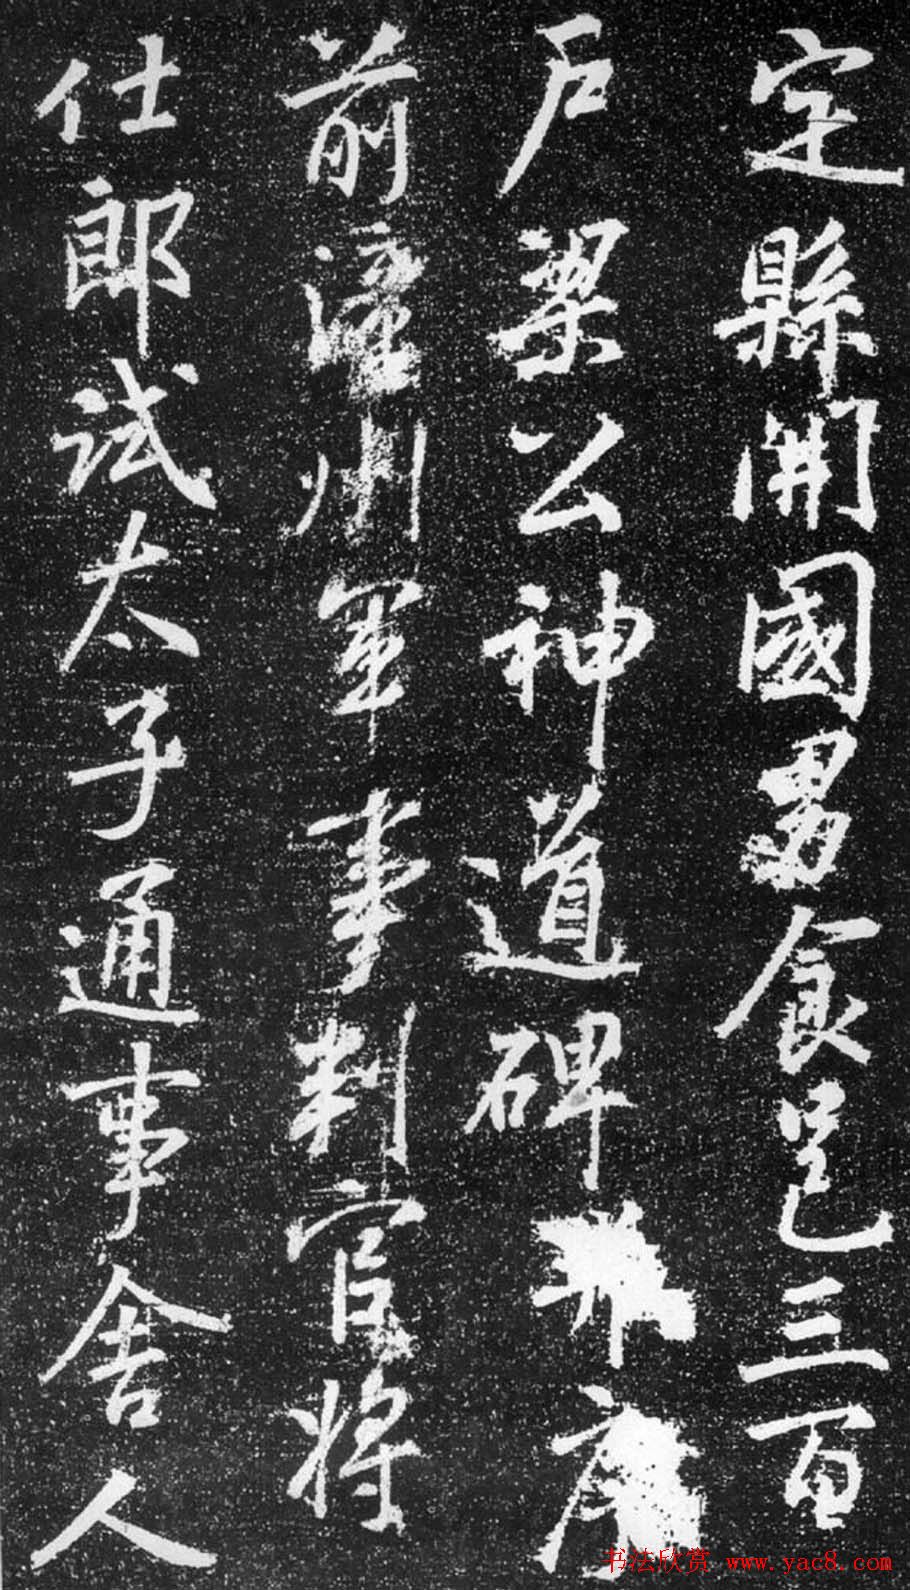 定縣開國男食邑三百
戶梁公神道碑并序
前漳州軍事判官將
仕郎試太子通事舍人
书法欣赏 www.yac8.com